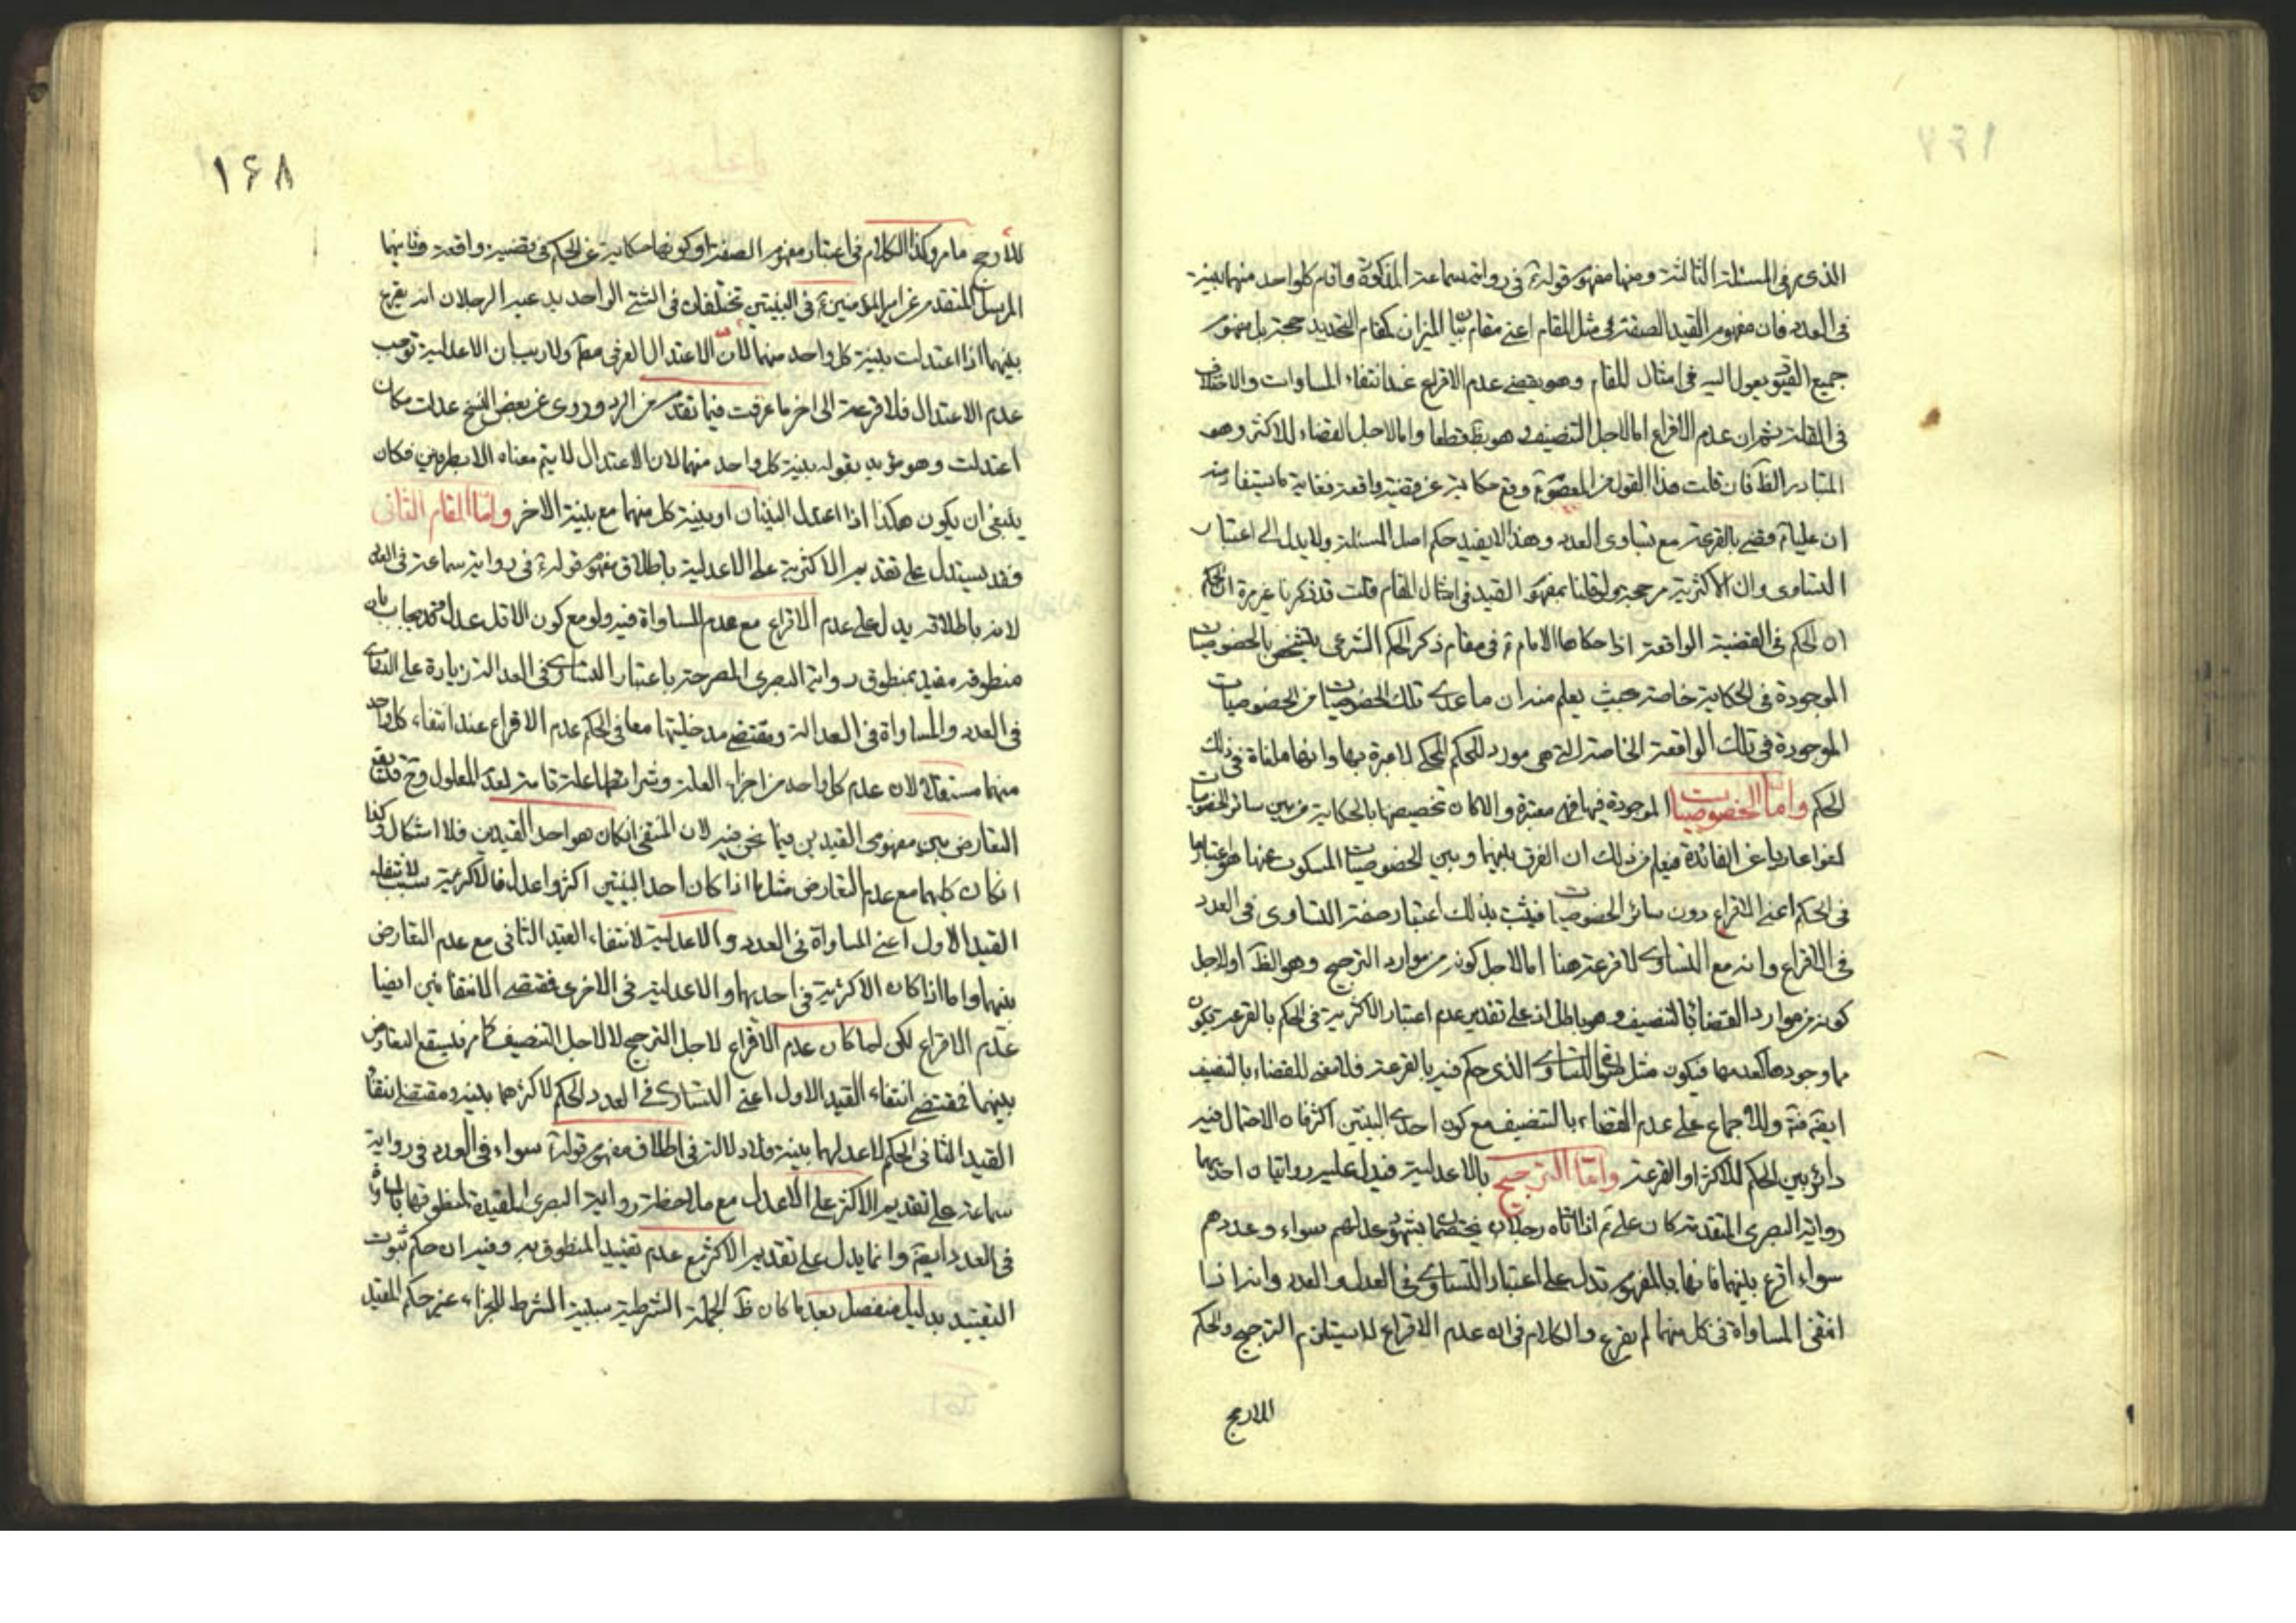 الذي هو في المسئلة الثالثة ومنها مفهوم قوله ع في رواية سماعة المذكورة واقام كل واحد منهما بينة
في العدد فان مفهوم القيد الصفة في مثل المقام اعني مقام بيان الميزان كمقام التحديد حجة بل مفهوم
جميع القيود يعول اليه في امثال المقام وهو يقتضي عدم الاقراع عند انتفاء المساوات والاختلاف
في المقابلة ثم ان عدم الاقراع اما لاجل التنصيف وهو بط قطعا واما لاجل القضاء للاكثر وهو
المتبادر الظ فان قلت هذا القول من المعصوم ع وقع حكاية عن قضية واقعة فغاية ما يستفاد منه
ان عليا ع قضى بالقرعة مع تساوي العدد وهذا لا يفيد حكم اصل المسئلة ولا يدل الى اعتبار
التساوي وان الاكثرية مرجحة ولو قلنا بمفهوم القيد في امثال المقام قلت قد ذكرنا غير مرة ان الحكم
ان الحكم في القضية الواقعة اذا حكاها الامام ع في مقام ذكر الحكم الشرعي يتشخص بالخصوصيات
الموجودة في الحكاية خاصة حيث يعلم منه ان ما عدى تلك الخصوصيات من الخصوصيات
الموجودة في تلك الواقعة الخاصة التي هي مورد للحكم المحكي لا عبرة بها وانها ملغاة في ذلك
الحكم واما الخصوصيات الموجودة فيها فهي معتبرة والا لكان تخصيصها بالحكاية من بين سائر الخصوصيات
لغوا عاريا عن الفائدة فيعلم من ذلك ان الفرق بينها وبين الخصوصيات المسكوت عنها هو اعتبارها
في الحكم اعني الاقراع دون سائر الخصوصيات فيثبت بذلك اعتبار صفة التساوي في العدد
في الاقراع وانه مع التساوي لا قرعة هنا اما لاجل كونه من موارد الترجيح وهو الظ او لاجل
كونه من موارد القضاء بالتنصيف وهو باطل اذ على تقدير عدم اعتبار الاكثرية في الحكم بالقرعة يكون
ما وجودها كعدمها فيكون مثل التساوي الذي حكم فيه بالقرعة فلا معنى للقضاء بالتنصيف
ايض فتم وللاجماع على عدم القضاء بالتنصيف مع كون احدى البينتين اكثر فان الاحتمال فيه
دائر بين الحكم للاكثر او القرعة واما الترجيح بالاعدلية فيدل عليه روايتان احديهما
رواية البصري المتقدمة كان علي ع اذا اتاه رجلان يختصمان بشهود عدلهم سواء وعددهم
سواء اقرع بينهما فانها بالمفهوم تدل على اعتبار التساوي في العدل والعدد وانه اذا
انتفى المساواة في كل منهما لم يقرع والكلام في ان عدم الاقراع لا يستلزم الترجيح والحكم
للارجح
١٦٨
للارجح ما مر وكذا الكلام في اعتبار مفهوم الصفة او كونها حكاية عن الحكم في قضية واقعة وثانيهما
المرسل المتقدم عن امير المؤمنين ع في البينتين تختلفان في الشئ الواحد يدعيه الرجلان انه يقرع
بينهما اذا اعتدلت بينة كل واحد منهما لان الاعتدال العرفي ولا ريب ان الاعدلية توجب
عدم الاعتدال فلا قرعة الى اخر ما عرفت فيما تقدم من الرد وروى عن بعض النسخ عدلت مكان
اعتدلت وهو مؤيد بقوله بينة كل واحد منهما لان الاعتدال لا يتم معناه الا بطرفين فكان
ينبغي ان يكون هكذا اذا اعتدل البينتان او بينة كل منهما مع بينة الاخر واما المقام الثاني
فقد يستدل على تقديم الاكثرية على الاعدلية باطلاق مفهوم قوله ع في رواية سماعة في العدد
لانه باطلاقه يدل على عدم الاقراع مع عدم المساواة فيه ولو مع كون الاقل عدلا وقد يجاب بان
منطوقه مقيد بمنطوق رواية البصري المصرحة باعتبار التساوي في العدالة زيادة على التساوي
في العدد والمساواة في العدالة ومقتضى مدخليتها معا في الحكم عدم الاقراع عند انتفاء كل واحد
منهما مستقلا لان عدم كل واحد من اجزاء العلة وشرائطها علة تامة لعدم المعلول وح فقد يقع
التعارض بين مفهومي القيدين فيما نحن فيه لان المنتفي ان كان هو احد القيدين فلا اشكال وكذا
ان كان كلاهما مع عدم التعارض مثل ما اذا كان احد البينتين اكثر واعدل فالاكثرية سبب لانتفاء
القيد الاول اعني المساواة في العدد والاعدلية لانتفاء القيد الثاني مع عدم التعارض
بينهما واما اذا كان الاكثرية في احديهما والاعدلية في الاخرى فمقتضى الانتفائين ايضا
عدم الاقراع لكن لما كان عدم الاقراع لاجل الترجيح لا لاجل التنصيف كما مر فيستقع التعارض
بينهما فمقتضى انتفاء القيد الاول اعني التساوي في العدد الحكم لاكثرهما بينة ومقتضى انتفاء
القيد الثاني الحكم لاعدلهما بينة فلا دلالة في اطلاق مفهوم قوله ع سواء في العدد في رواية
سماعة على تقديم الاكثر على الاعدل مع ملاحظة رواية البصري المقيدة لمنطوقها بالمساواة
في العدد ايض وانما يدل على تقديم الاكثر مع عدم تقييد المنطوق به وفيه ان حكم ثبوت
التقييد بدليل منفصل بعد ما كان ظ الجملة الشرطية سببية الشرط للجزاء عين حكم المقيد